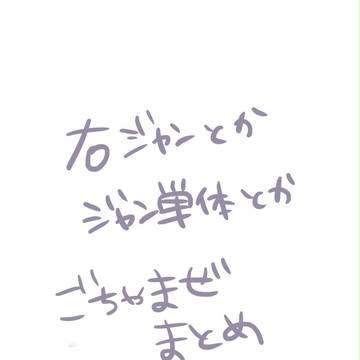 右ジャンとか
ジャン単体とか
ごちゃまぜ
まとめ